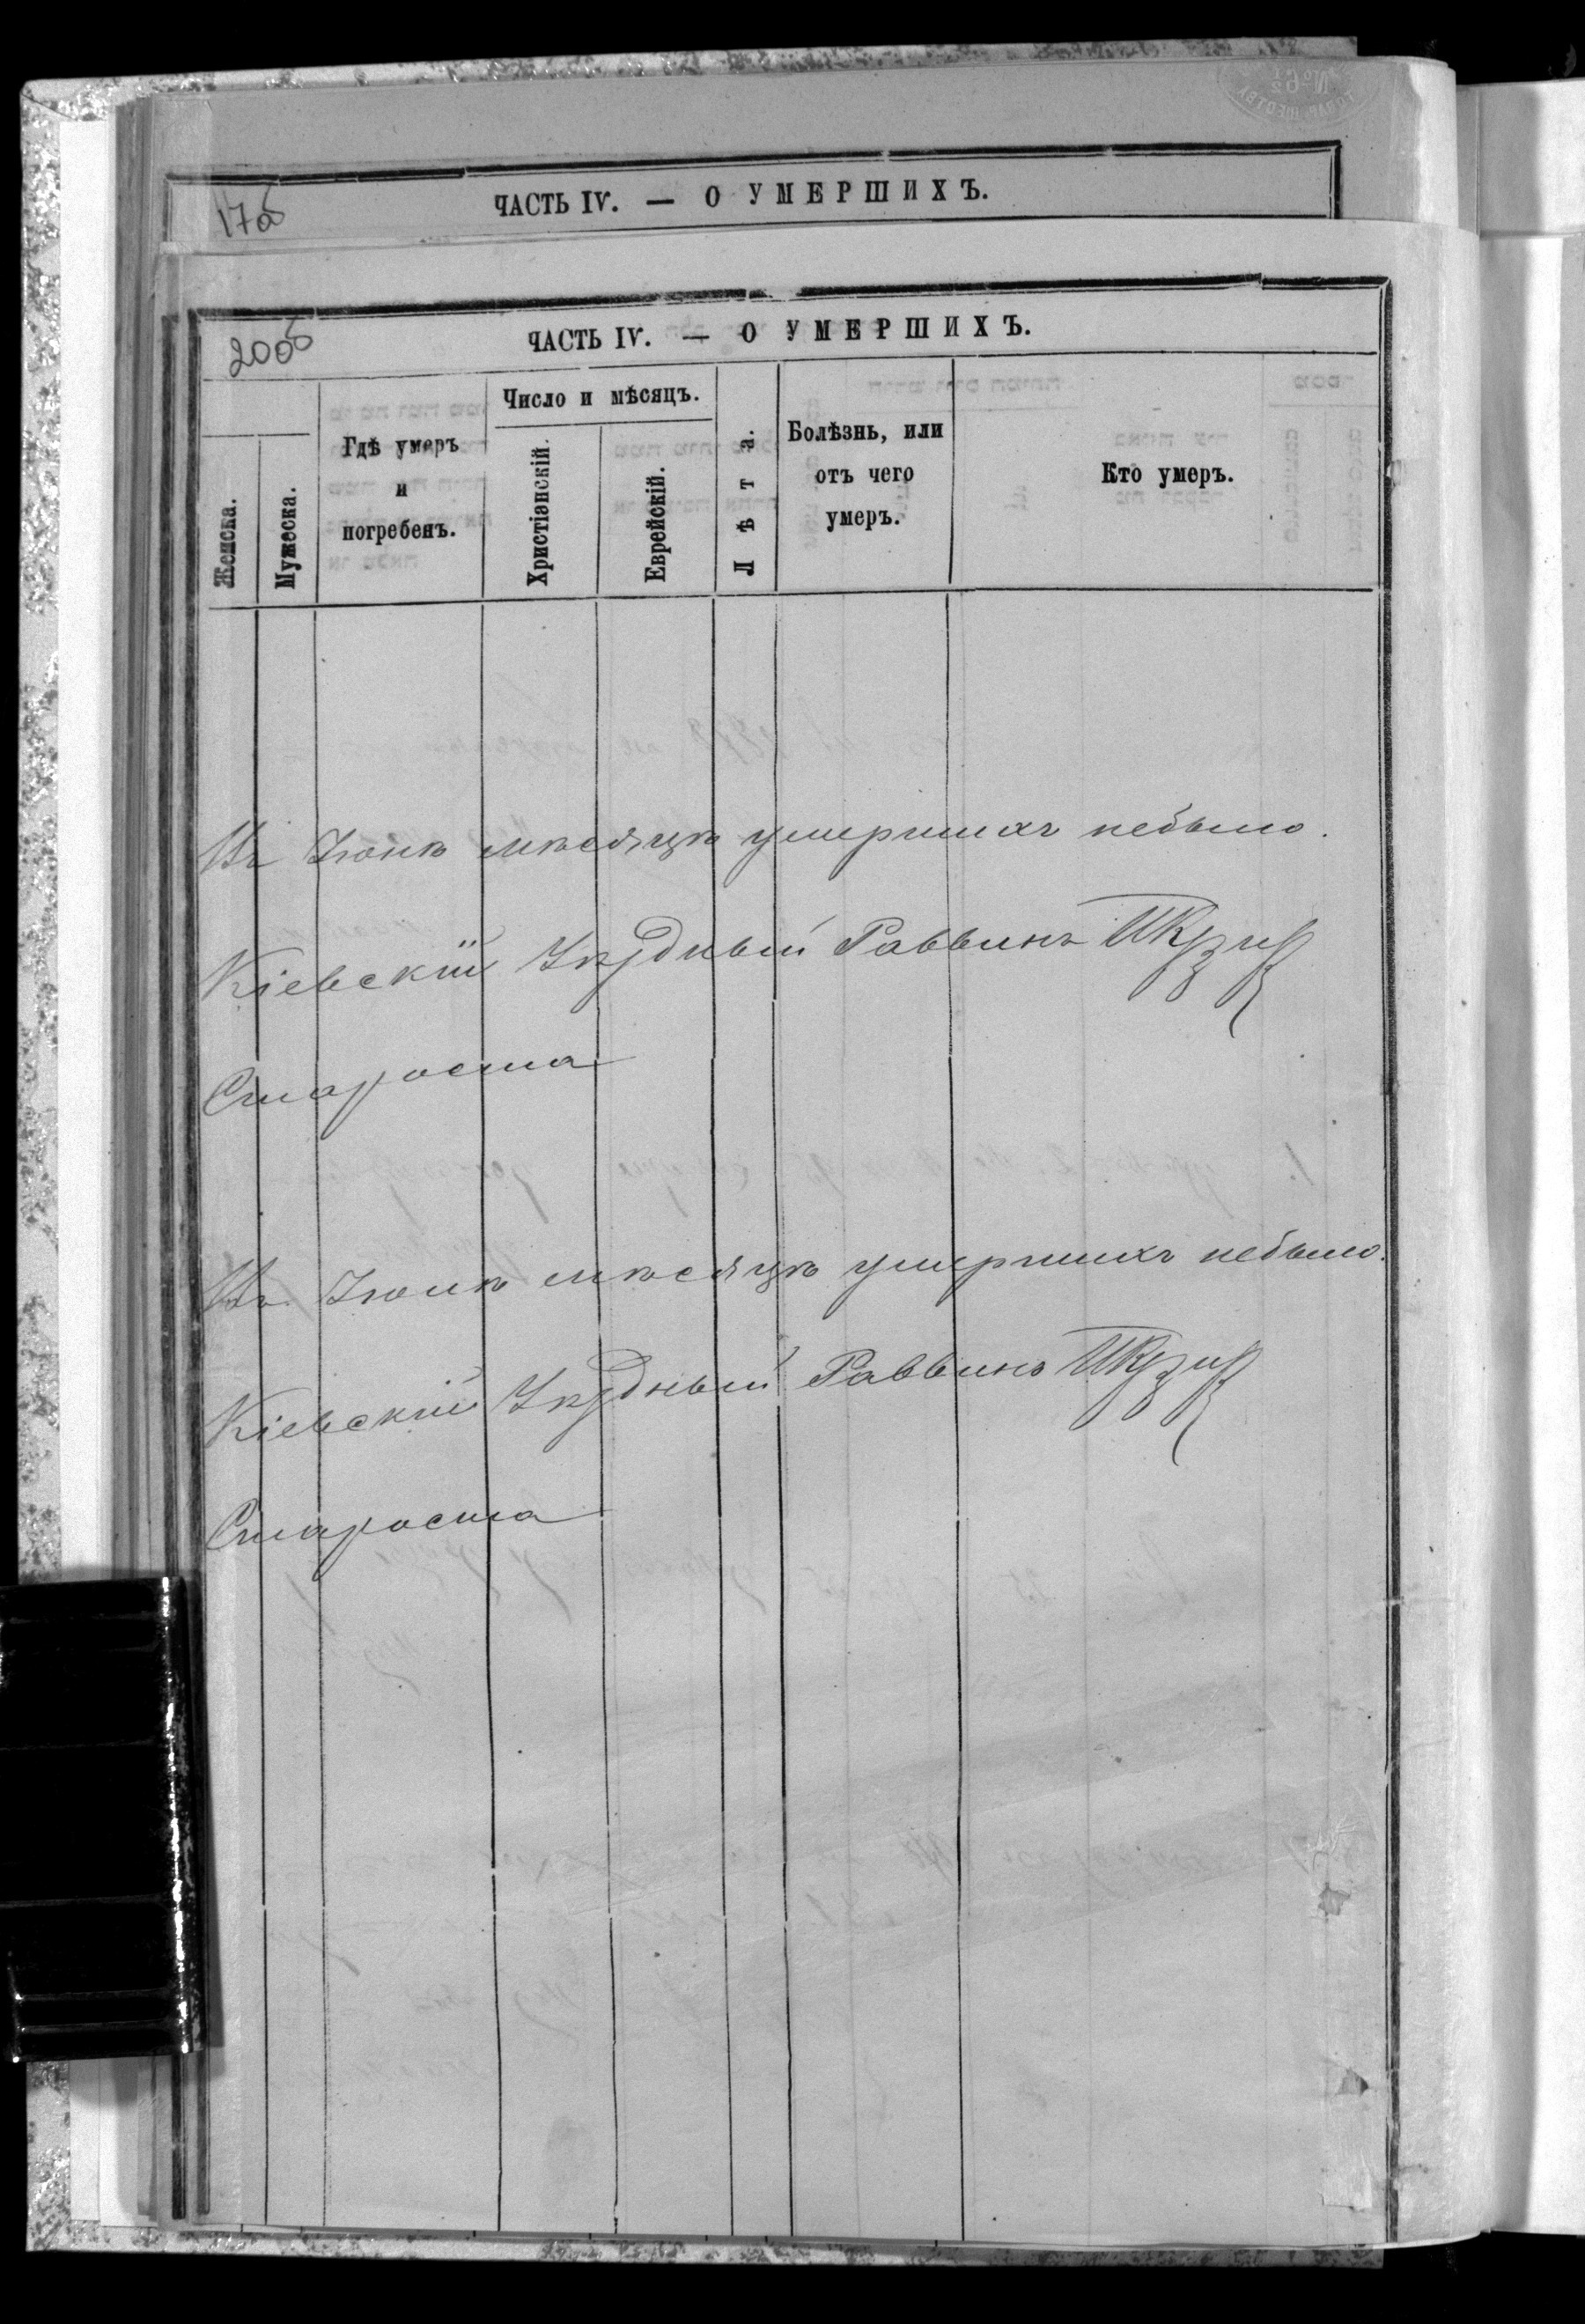 17об
ЧАСТЬ IV. — О УМЕРШИХЪ.
200об
ЧАСТЬ IV. — О УМЕРШИХЪ.
Женска.
Мужеска.
Гдѣ умеръ
и
погребенъ.
Число и мѣсяцъ.
Христіанскій.
Еврейскій.
Лѣта.
Болѣзнь, или
отъ чего
умеръ.
Кто умеръ.
Въ Іюнѣ мѣсяцѣ умершихъ небыло.
Кіевскій Уѣздный Раввинъ
Староста
Въ Іюлѣ мѣсяцѣ умершихъ небыло.
Кіевскій Уѣздный Раввинъ
Староста